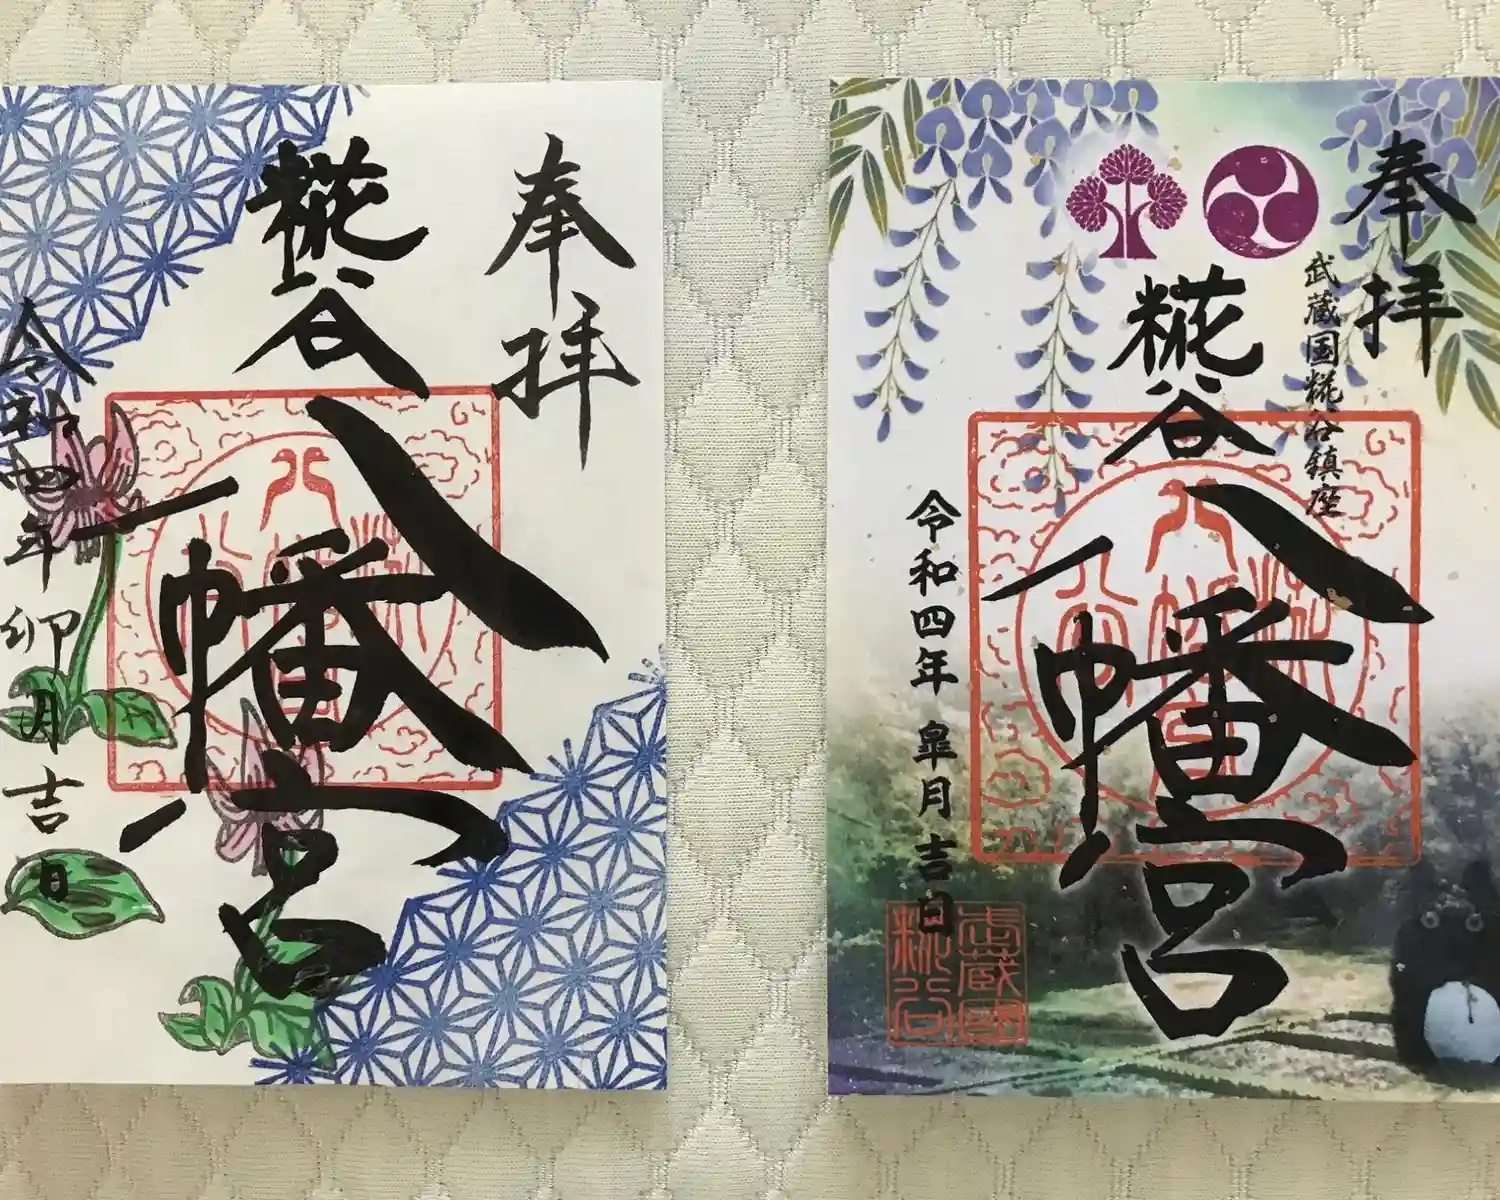 奉拝
糀谷
八幡宮
令和四年卯月吉日
奉拝
武蔵国糀谷鎮座
糀谷
八幡宮
令和四年皐月吉日
武蔵國
糀谷